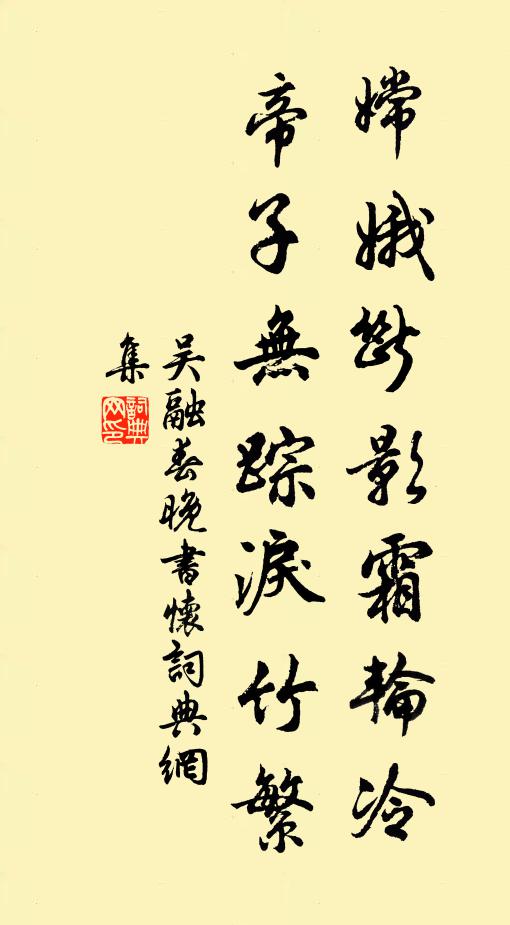 嫦娥断影霜輪冷
帝子無踪淚竹繁
吴融春晚書懷詞典網
集
詞典
网印